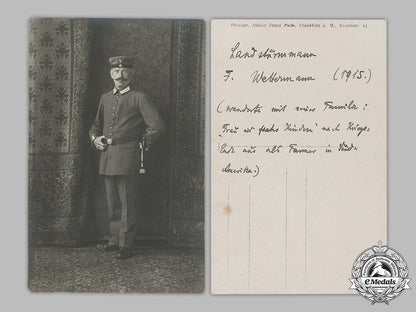 Photogr. Atelier Franz Pulm, Frankfurt a. M., Kaiserstr. 41.
Landsturmmann
F. Wettermann (1915.)
(wanderte mit seiner Familie:
Frau u. sechs Kinder nach Kriegs-
Ende aus als Farmer in Süd-
Amerika.)
eMedals